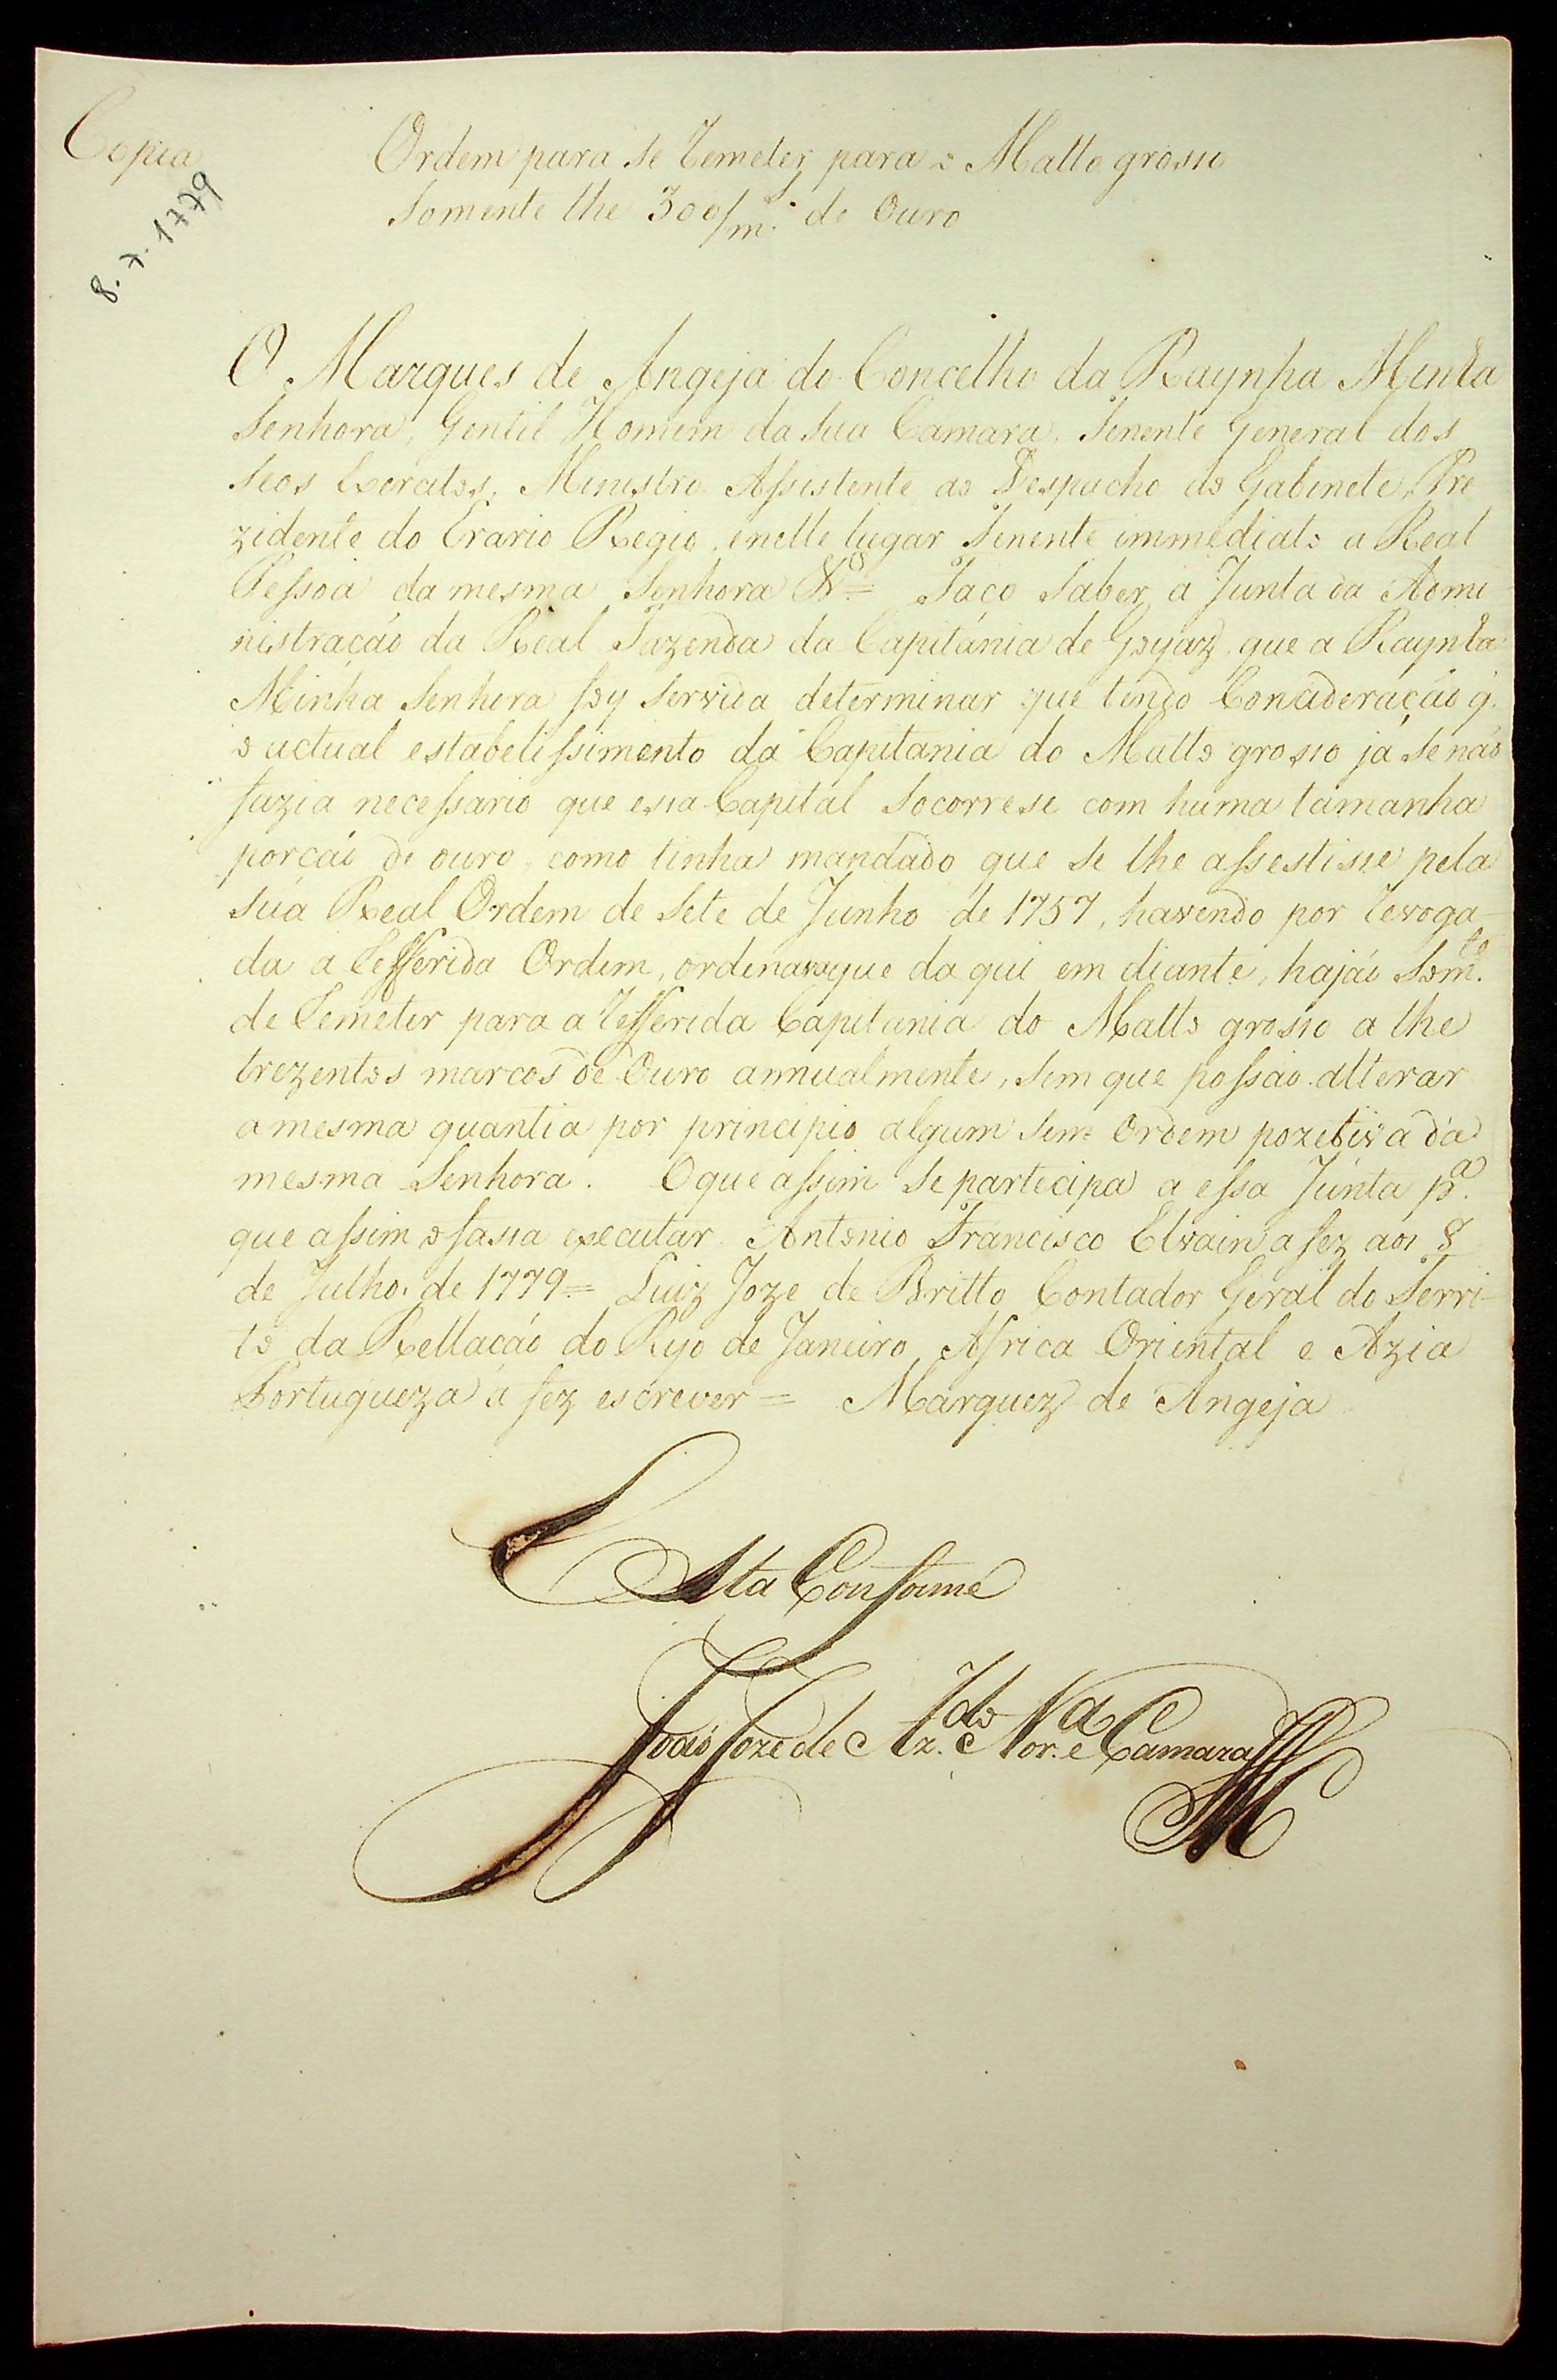 Copia
8.7.1779
Ordem para se Remeter para o Matto grosso
somente the 300/m.os de Ouro
O Marques de Angeja do Concelho da Raynha Minha
Senhora, Gentil Homem da sua Camara, Tenente General dos
seos Exercitos, Ministro Assistente ao Despacho do Gabinete, Pre
zidente do Erario Regio, enelle lugar Tenente immediato a Real
Pessoa da mesma Senhora &ª = Faço saber a Junta da Admi
nistração da Real Fazenda da Capitánia de Goyaz que a Raynha
Minha Senhora foy servida determinar que tendo Concideração q.
o actual estabelissimento da Capitania do Matto grosso já se não
fazia necessario que essa Capital socorrese com huma tamanha
porção de ouro como tinha mandado que se lhe assestisse pela
sua Real Ordem de Sete de Junho de 1757, havendo por revoga-
da a Refferida Ordem, ordenava que da qui em diante, hajão som.te
de Remeter para a refferida Capitania do Matto grosso a the
trezentos marcos de Ouro annualmente, sem que possão alterar
a mesma quantia por principio algum sem Ordem pozetiva da
mesma Senhora. O que assim se partecipa a essa Junta p.a
que assim o fassa executar. Antonio Francisco a fez aos 8
de Julho de 1779 = Luiz Joze de Britto Contador Geral do Terri-
to da Rellação do Ryo de Janeiro, Africa Oriental e Azia
Portugueza a fez escrever = Marquez de Angeja
Esta Conforme
João Joze de Az.do Nor.a e Camara